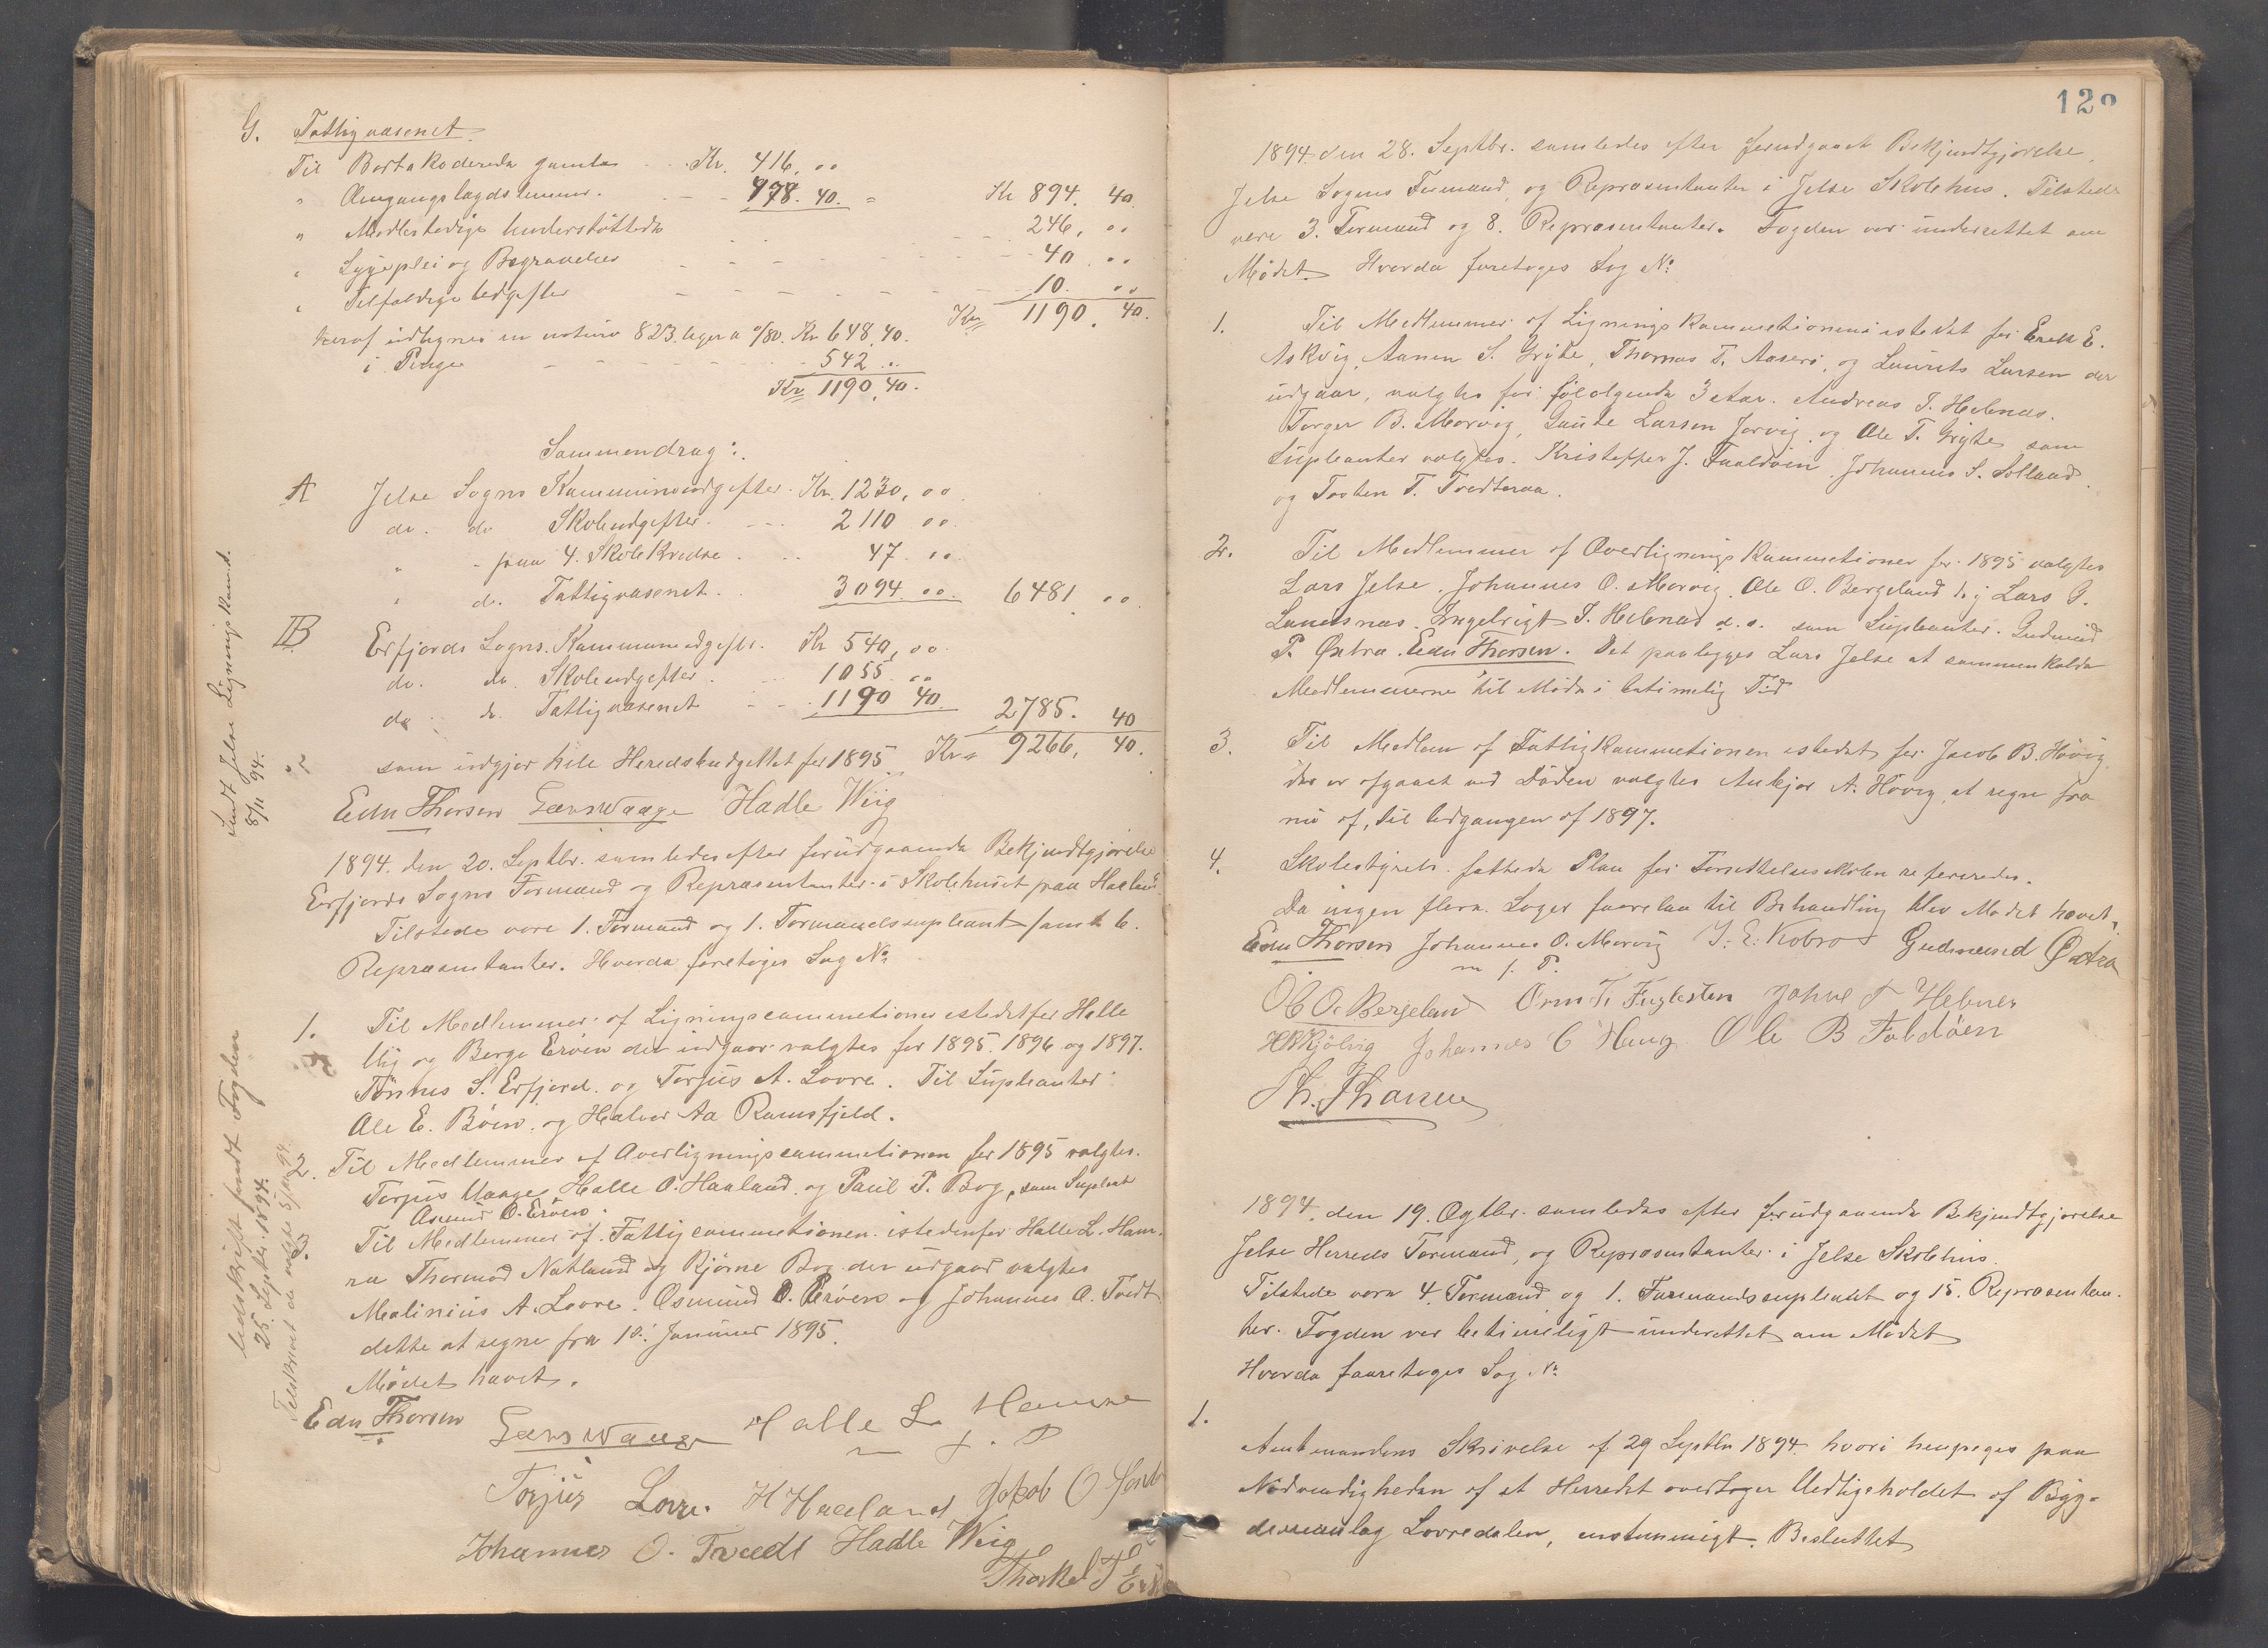 G. Fattigvæsenet.
Til Bortakoderede gamle Kr. 416. 00
" Omgangslægdslemmer. 478. 40. = Kr 894. 40.
" Midlertidige Understøttede 246. 00
" Sygepleie og Begravelser 40 00
" Tilfældige Udgifter 10. 00
Kr 1190. 40.
heraf udlignes in natura 823. Kr 648. 40.
i Penge 542 00
Kr 1190. 40.
Sammendrag:
A Jelse Sogns Kommuneudgifter. Kr. 1230, 00
do. do Skoleudgifter. 2110 00
" - paa 4. Skole Kredse. 47 00
" do. Fattigvæsenet. 3094. 00. 6481 00
B Erfjords Sogns. Kommuneudgifter. Kr 540, 00
do. do. Skoleudgifter. 1055 00
do do. Fattigvæsenet 1190 40. 2785. 40
som udgjør hele Heredsbudgettet for 1895. Kr 9266, 40.
Edn Thorsen Hadle Wiig
1894. den 20. Septbr. samledes efter forudgaaende Bekjendtgjørelse
Erfjords Sogns Formænd og Repræsentanter i Skolehuset paa Haaland.
Tilstede vare 1. Formand og 1. Formandssupleant samt 6.
Repræsentanter. Hvorda foretoges Sag No
1. Til Medlemmer af Ligningscommitionen istedetfor Halle
Wiig og Berge Erøen der udgaar valgtes for 1895. 1896 og 1897.
Tønnes S. Erfjord. og Torjus A. Lovre. Til Supleanter
Ole E. Bøen. og Halvor Aa Ramsfjeld.
2. Til Medlemmer af Overligningscommitionen for 1895 valgtes.
Torjus Vaage, Halle O. Haaland. og Paul P. Bog, som Supleant
Asmund O. Erøen.
3. Til Medlemmer af Fattigcommitionen istedenfor Halle L. Ham-
re Thormod Natland og Bjørne Bog der udgaar valgtes
Malinius A. Lovre. Osmund O. Erøen og Johannes O. Tvedt
dette at regne fra 1ste Januar 1895.
Mødet hævet.
Edn Thorsen Halle L. Hamre
m f. P
Torjus Lovre. H Haaland Jakob O
Johannes O. Tvedt Hadle Wiig
Thorkel T
Sendt Jelse Ligningskomd.
8/11 94.
Udskrift sendt Fogden
25. Septbr. 1894.
1894. den 28. Septbr. samledes efter forudgaaet Bekjendtgjørelse,
Jelse Sogns Formænd, og Repræsentanter i Jelse Skolehus. Tilstede
vare 3. Formænd og 8. Repræsentanter. Fogden var underrettet om
Mødet. Hvorda foretoges Sag No
1. Til Medlemmer af Ligningskommitionen istedet for Erik E.
Askvig, Aanen S. Gryte, Thomas T. Aaserø, og Laurits Larsen der
udgaar, valgtes for følgende 3 Aar. Andreas T. Hebnes.
Torger B. Marvig, Gaute Larsen Jørvig. og Ole T. Gryte som
Supleanter valgtes. Kristoffer J. Foldøen. Johannes S. Solland.
og Torsten T. Tvedteraa.
2. Til Medlemmer af Overlignings Kommitionen for 1895 valgtes
Lars Jelse. Johannes O. Marvig. Ole O. Bergeland og Lars G.
Landsnæs. Ingebrigt T. Hebnes d. o. som Supleanter. Gudmund
P. Østrø. Edn Thorsen. Det paalegges Lars Jelse at sammenkalde
Medlemmerne til Møde i betimelig Tid
3. Til Medlem af Fattigkommitionen istedet for Jacob B. Høivig,
der er afgaaet ved Døden valgtes Ankjær A. Høivig, at regne fra
nu af, til Udgangen af 1897.
4. Skolestyrets fattede Plan for Forsettelsesskolen refereredes.
Da ingen flere Sager foorelaa til Behandling blev Mødet hævet,
Edn Thorsen Johannes O. Marvig J. E. Kobro Gudmund Østrø
m. f. P.
Ole O. Bergeland Orm T. Fuglesten Johne T Hebnes
Johannes C Haug Ole B Foldøen
Th. Thoresen
1894. den 19. Octbr. samledes efter forudgaaende Bekjendtgjørelse
Jelse Herreds Formænd, og Repræsentanter i Jelse Skolehus.
Tilstede vare 4. Formænd og 1. Formandssupleant og 15. Repræsentan-
ter. Fogden var betimeligt underettet om Mødet
Hvorda fooretoges Sag No
1.
Amtmandens Skrivelse af 29 Septbr 1894. hvori henpeges paa
Nødvendigheden af at Herredet overtager Vedligeholdet af Byg-
deveianlæg Lovredalen, enstemmigt Besluttet